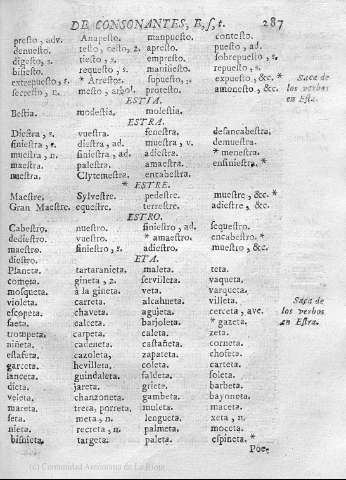 DE CONSONANTES, E, s, t. 287
presto, adv. Anapesto. manpuesto. contesto.
denuesto. testo, cesto, 2. apresto. puesto, ad.
digesto, s. tiesto, s. empresto. sobrepuesto, s.
bisiesto. requesto, s. manifiesto. repuesto, s.
extrepuesto, s. * Arrestos. supuesto, s. expuesto, &c. * Saca de
secresto, n. mesto, arbol. protesto. amonesto, &c. los verbos
ESTIA. en Esta.
Bestia. modestia. molestia.
ESTRA.
Diestra, s. vuestra. fenestra. desancabestra.
siniestra, s. diestra, ad. muestra, v. demuestra.
muestra, n. siniestra, ad. adiestra. * menestra.
maestra. palestra. amaestra. ensiniestra. *
nuestra. Clytemestra. encabestra.
* ESTRE.
Maestre. Sylvestre. pedestre. muestre, &c. *
Gran Maestre. equestre. terrestre. adiestre, &c.
ESTRO.
Cabestro. nuestro. siniestro, ad. sequestro.
dediestro. vuestro. * amaestro. encabestro. *
maestro. siniestro, s. adiestro. muestro, &c.
diestro. ETA.
Planeta. tartaranieta. maleta. teta.
cometa. gineta, 2. servilleta. vaqueta.
mosqueta. à la gineta. veta. varqueta.
violeta. carreta. alcahueta. villeta. Saca de
escopeta. chaveta. agujeta. cerceta, ave. los verbos
saeta. calceta. barjoleta. * gazeta. en Estra.
trompeta. carpeta. caleta. zeta.
niñeta. cadeneta. castañeta. corneta.
estafeta. cazoleta. zapateta. chofeta.
garceta. hevilleta. coleta. carteta.
lanceta. guindaleta. faldeta. soleta.
dieta. jareta. grieta. barbeta.
veleta. chanzoneta. gambeta. bayoneta.
mareta. treta, porreta. muleta. maceta.
seta. meta, n. lengueta. xeta, n.
nieta. recreta, n. palmeta. moceta.
bisnieta. targeta. paleta. espineta. *
Poe-
(c) Comunidad Autónoma de La Rioja